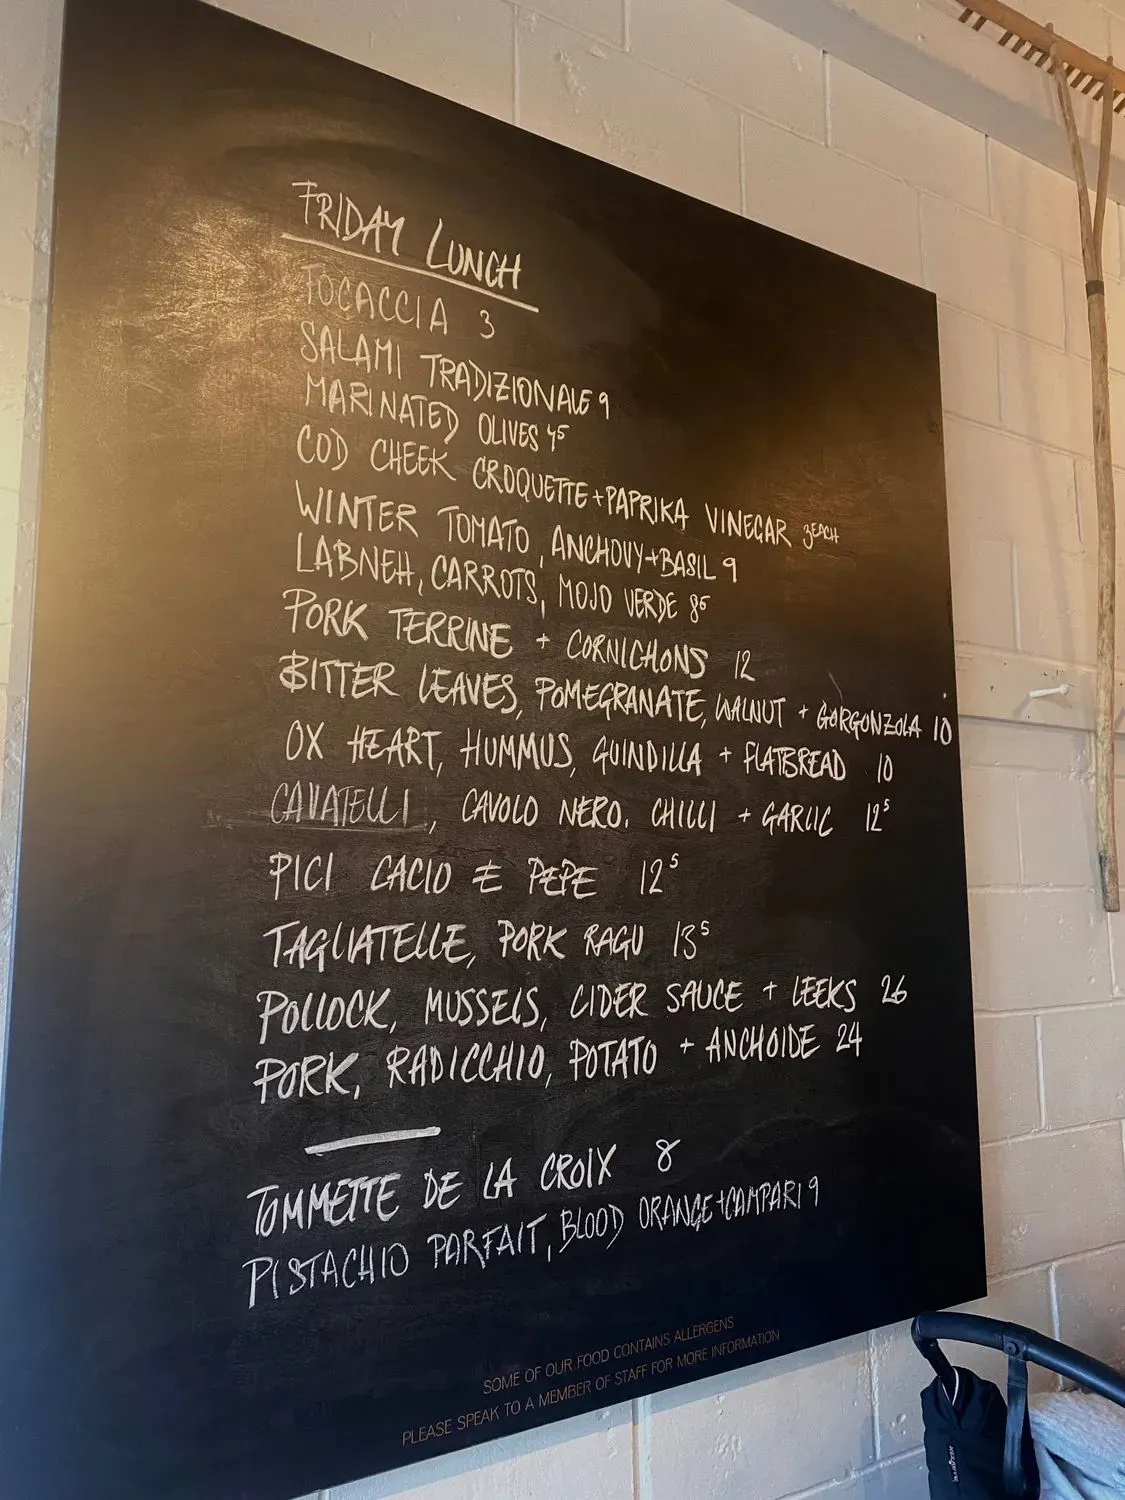 FRIDAY LUNCH
FOCACCIA 3
SALAMI TRADIZIONALE 9
MARINATED OLIVES 4⁵
COD CHEEK CROQUETTE + PAPRIKA VINEGAR 3 EACH
WINTER TOMATO, ANCHOVY + BASIL 9
LABNEH, CARROTS, MOJO VERDE 8⁵
PORK TERRINE + CORNICHONS 12
BITTER LEAVES, POMEGRANATE, WALNUT + GORGONZOLA 10
OX HEART, HUMMUS, GUINDILLA + FLATBREAD 10
CAVATELLI, CAVOLO NERO, CHILLI + GARLIC 12⁵
PICI CACIO E PEPE 12⁵
TAGLIATELLE, PORK RAGU 13⁵
POLLOCK, MUSSELS, CIDER SAUCE + LEEKS 26
PORK, RADICCHIO, POTATO + ANCHOIDE 24
TOMMETTE DE LA CROIX 8
PISTACHIO PARFAIT, BLOOD ORANGE + CAMPARI 9
SOME OF OUR FOOD CONTAINS ALLERGENS
PLEASE SPEAK TO A MEMBER OF STAFF FOR MORE INFORMATION